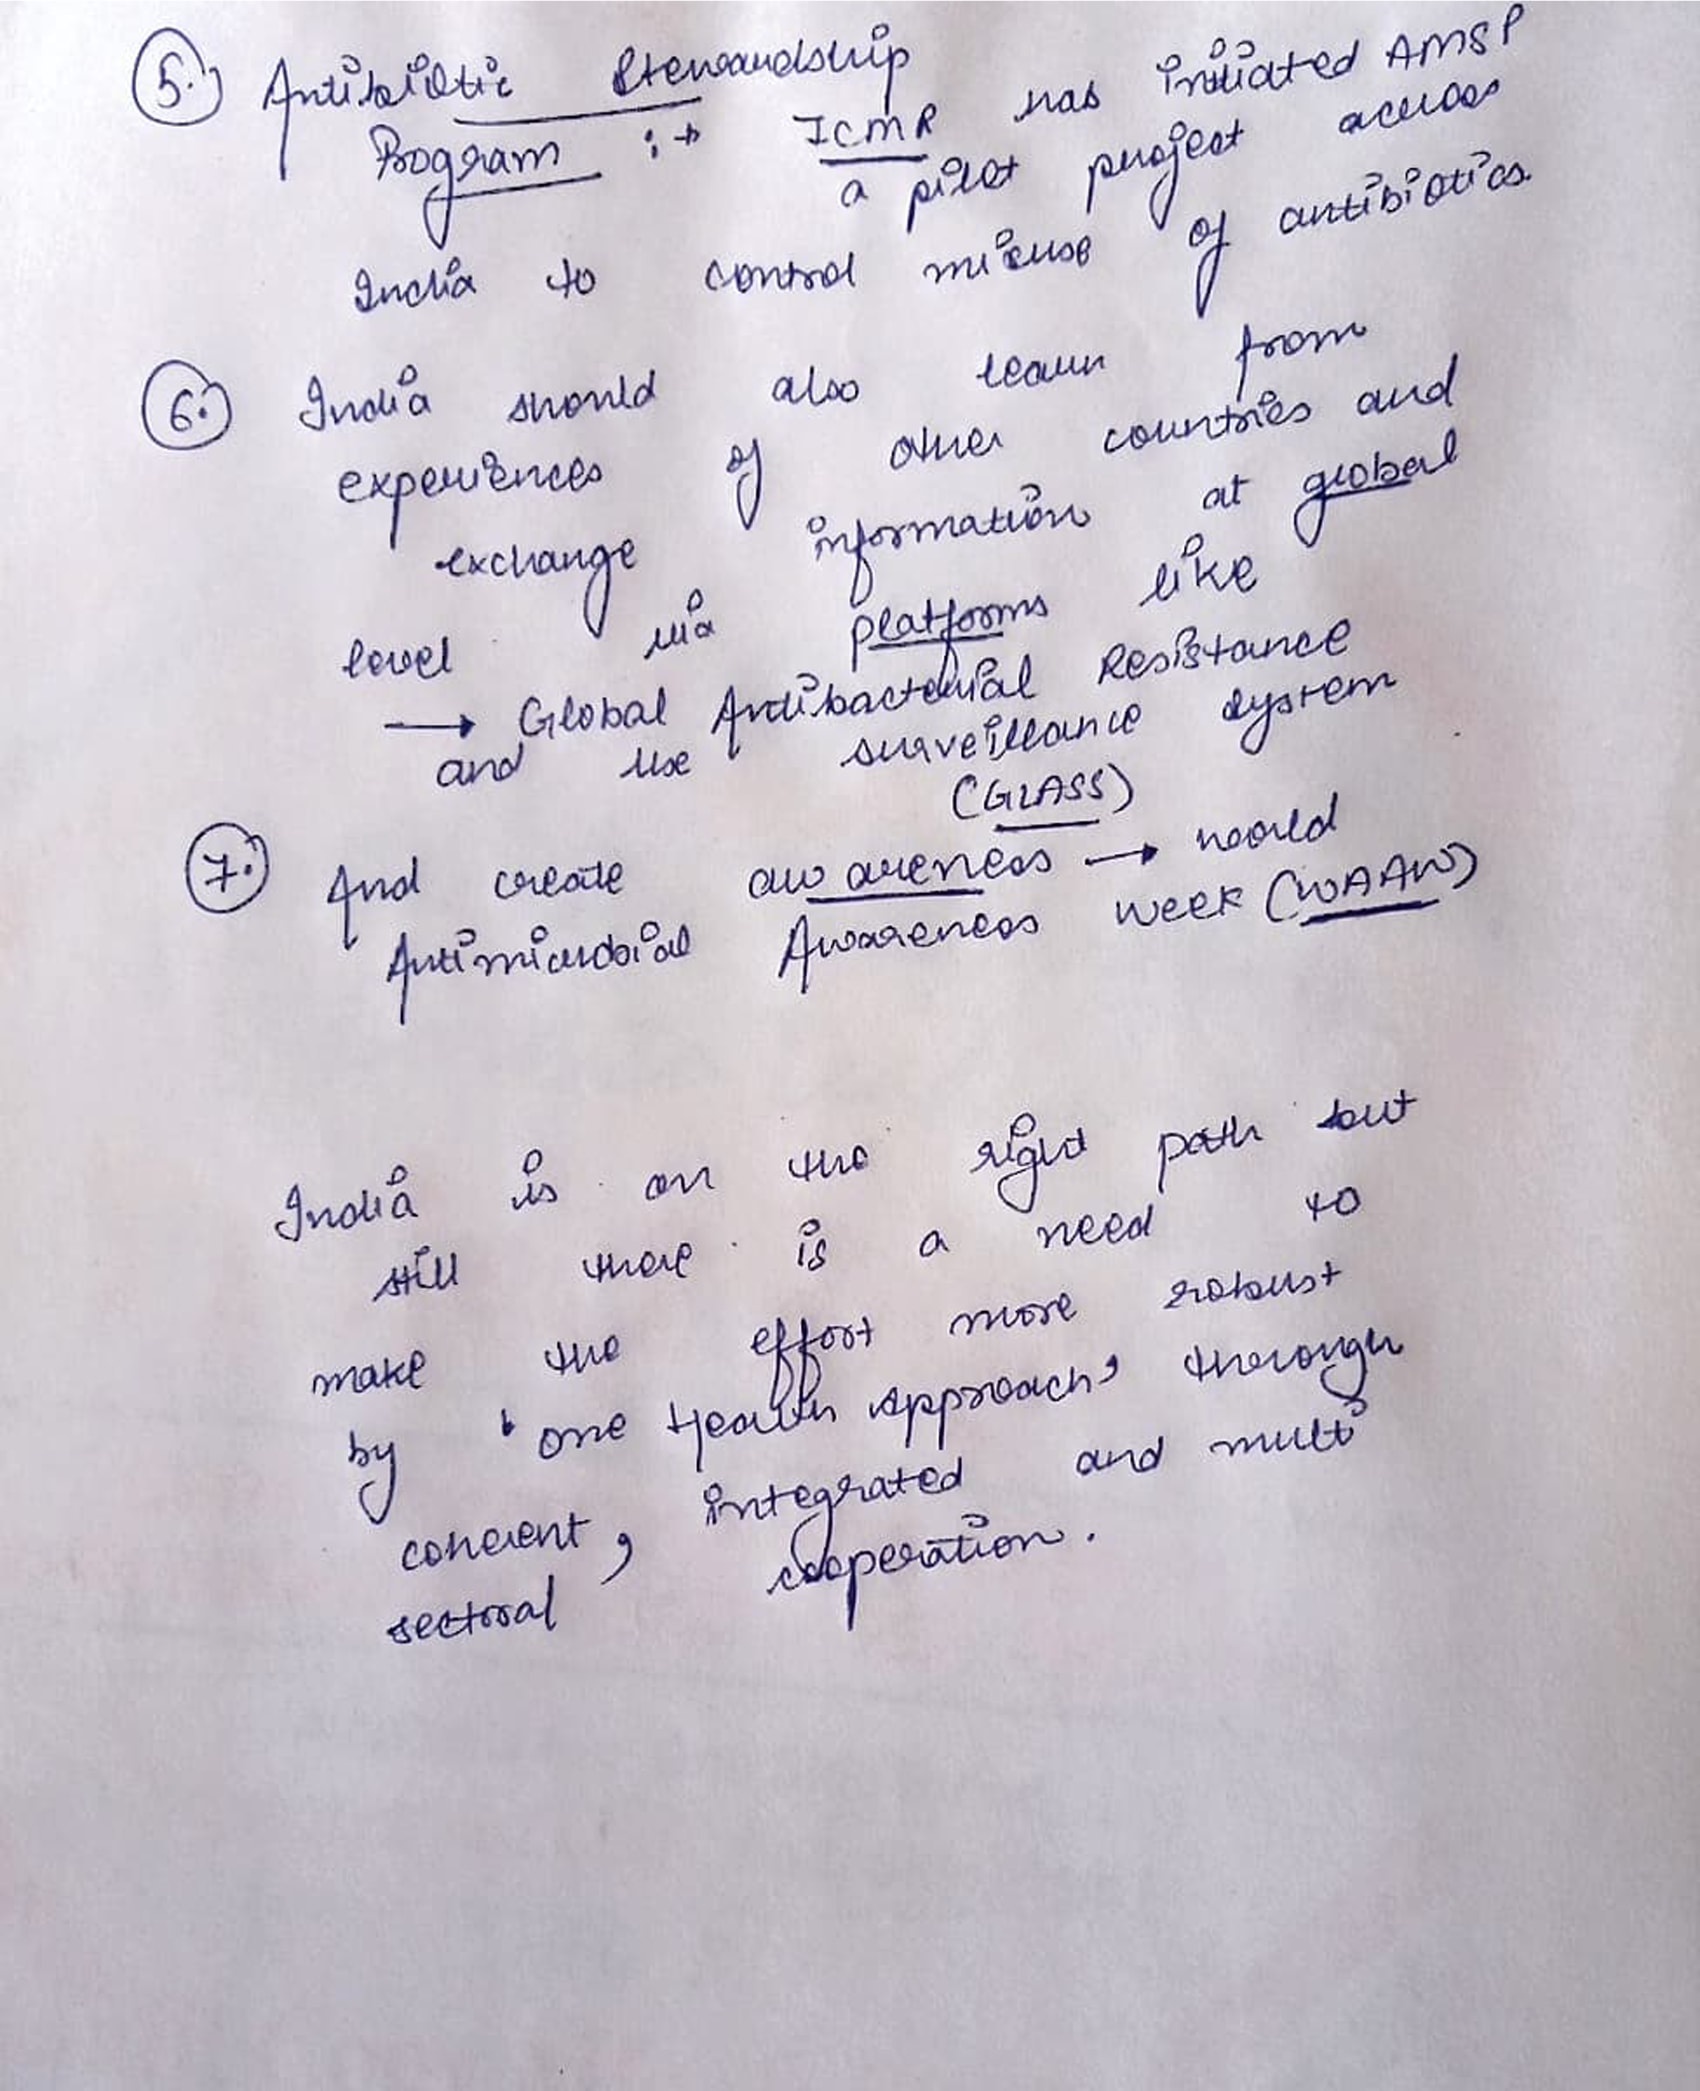 5. Antibiotic Stewardship
Program :→ ICMR has initiated AMSP
a pilot project across
India to control misuse of antibiotics.
6. India should also learn from
experiences of other countries and
exchange information at global
level via platforms like
→ Global Antibacterial Resistance
and use surveillance system
(GLASS)
7. And create awareness → world
Antimicrobial Awareness week (WAAW)
India is on the right path but
still there is a need to
make the effort more robust
by 'one Health Approach' through
coherent, integrated and multi
sectoral cooperation.